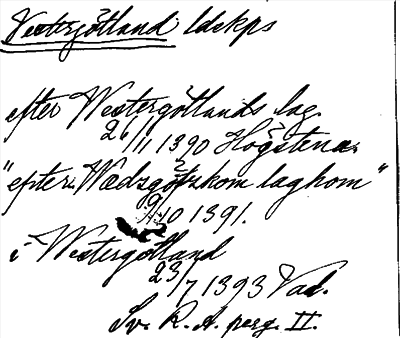 Vestergötland ldskps
efter Westergötlands lag.
26/11 1390 Högstena.
"efter Wædzgøtzkom laghom"
9/10 1391.
i Westergötland
23/7 1393 Vad.
Sv. R. A. perg. II.